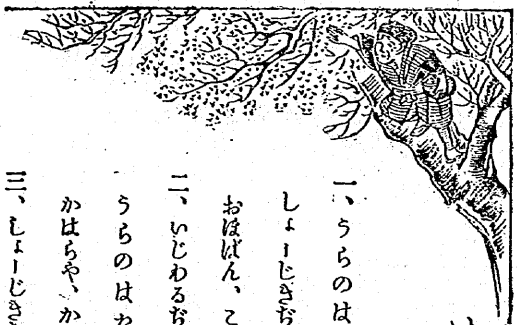 一、うらのは
しょーじきぢ
おほばん、こ
二、いじわるぢ
うらのはた
かはらや、か
三、しょーじき